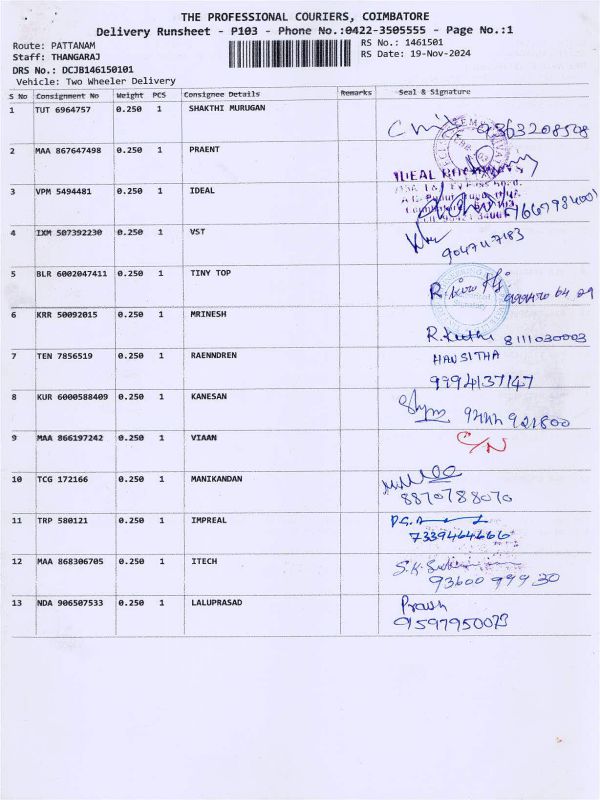 THE PROFESSIONAL COURIERS, COIMBATORE
Delivery Runsheet - P103 - Phone No.:0422-3505555 - Page No.:1
Route: PATTANAM RS No.: 1461501
Staff: THANGARAJ RS Date: 19-Nov-2024
DRS No.: DCJB146150101
Vehicle: Two Wheeler Delivery
S No Consignment No Weight PCS Consignee Details Remarks Seal & Signature
1 TUT 6964757 0.250 1 SHAKTHI MURUGAN
9363208508
2 MAA 867647498 0.250 1 PRAENT
IDEAL
3 VPM 5494481 0.250 1 IDEAL
4 IXM 507392230 0.250 1 VST
9047117183
5 BLR 6002047411 0.250 1 TINY TOP
6 KRR 50092015 0.250 1 MRINESH
8111030003
7 TEN 7856519 0.250 1 RAENNDREN HANSITHA
9994137147
8 KUR 6000588409 0.250 1 KANESAN
921800
9 MAA 866197242 0.250 1 VIAAN C/N
10 TCG 172166 0.250 1 MANIKANDAN
8870788070
11 TRP 580121 0.250 1 IMPREAL
7339464666
12 MAA 868306705 0.250 1 ITECH
93600 99930
13 NDA 906507533 0.250 1 LALUPRASAD
9597950073